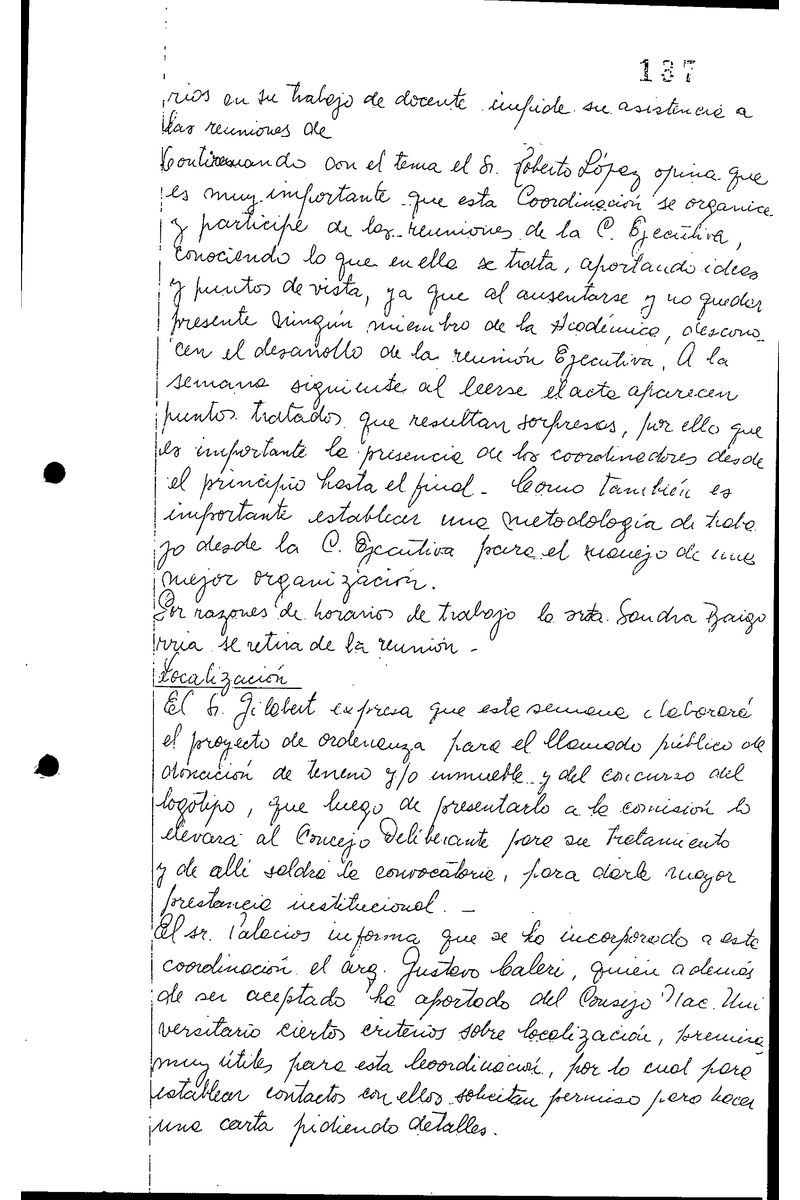 137
rios en su trabajo de docente impide su asistencia a
las reuniones de
Continuando con el tema el Sr. Roberto López opina que
es muy importante que esta Coordinación se organice
y participe de las reuniones de la C. Ejecutiva,
conociendo lo que en ella se trata, aportando ideas
y puntos de vista, ya que al ausentarse y no quedar
presente ningún miembro de la Académica, descono-
cen el desarrollo de la reunión Ejecutiva. A la
semana siguiente al leerse el acta aparecen
puntos tratados que resultan sorpresas, por ello que
es importante la presencia de los coordinadores desde
el principio hasta el final - Como también es
importante establecer una metodología de traba
jo desde la C. Ejecutiva para el manejo de una
mejor organización.
Por razones de horarios de trabajo la srta. Sandra Baigo
rria se retira de la reunión -
Localización
El Sr. Gilabert expresa que esta semana elaborará
el proyecto de ordenanza para el llamado público de
donación de terreno y/o inmueble y del concurso del
logotipo, que luego de presentarlo a la comisión lo
elevará al Concejo Deliberante para su tratamiento
y de allí saldrá la convocatoria, para darle mayor
prestancia institucional. -
El sr. Palacios informa que se ha incorporado a esta
coordinación el arq. Gustavo Caleri, quien además
de ser aceptado ha aportado del Consejo Nac. Uni
versitario ciertos criterios sobre localización, premisas
muy útiles para esta Coordinación, por lo cual para
establecer contactos con ellos solicitan permiso para hacer
una carta pidiendo detalles.